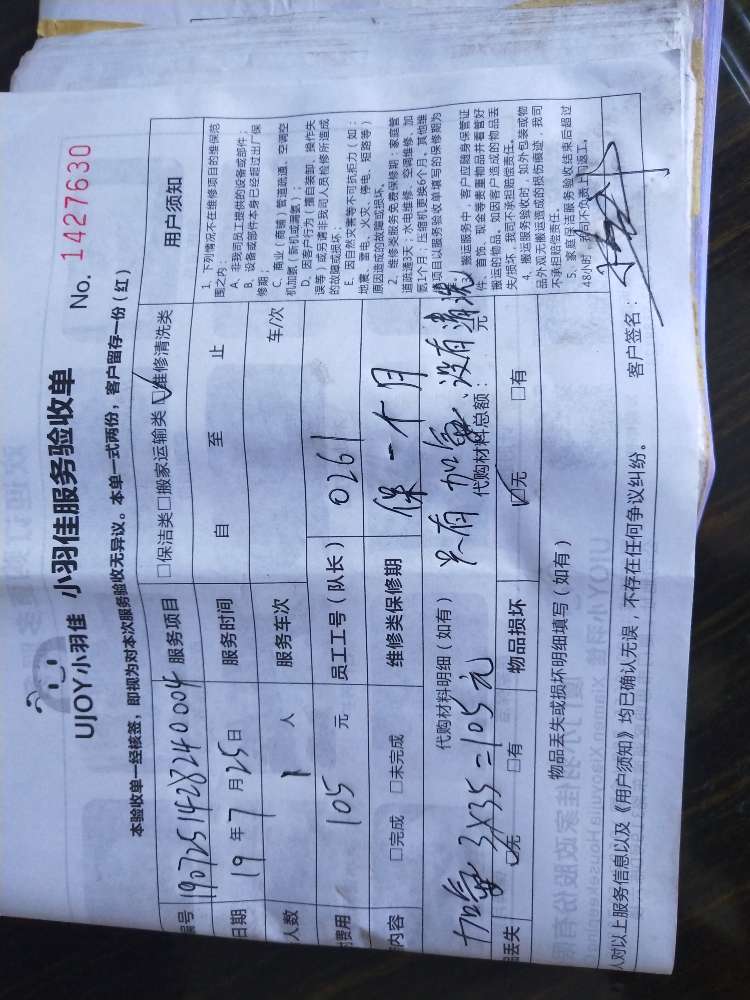 UJOY小羽佳 小羽佳服务验收单
No. 1427630
本验收单一经核签，即视为对本次服务验收无异议。本单一式两份，客户留存一份（红）
编号 1907251428240004 服务项目 □保洁类□搬家运输类☑维修清洗类
日期 19年7月25日 服务时间 自 至 止
人数 1人 服务车次 车/次
费用 105元 员工工号（队长） 0261
内容 □完成 □未完成 维修类保修期 保一个月
代购材料明细（如有） 只有加氟、没有清洗
加氟 3×35=105元 代购材料总额： 元
丢失 ☑无 □有 物品损坏 ☑无 □有
物品丢失或损坏明细填写（如有）
认对以上服务信息以及《用户须知》均已确认无误，不存在任何争议纠纷。 客户签名：
用户须知
1、下列情况不在维修项目的维保范
围之内：
A、非我司员工提供的设备或部件；
B、设备或部件本身已经超过出厂保
修期；
C、商业（商铺）管道疏通、空调空
机加氨（新机或满氨）；
D、因客户行为（擅自装卸、操作失
误等）或另请非我司人员检修所造成
的故障或损坏；
E、因自然灾害等不可抗拒力（如：
地震、雷击、火灾、停电、短路等）
原因造成的故障或损坏。
2、维修类服务免费保修期：家庭管
道疏通3天；水电维修、空调维修、加
氨1个月；压缩机更换6个月，其他维
修项目以服务验收单填写的保修期为
搬运服务中，客户应随身保管证
件、首饰、现金等贵重物品并看管好
搬运的物品。如因客户造成的物品丢
失/损坏，我司不承担赔偿责任。
4、搬运服务验收时，如外包装或物
品外观无搬运造成的损伤痕迹，我司
不承担赔偿责任。
5、家庭保洁服务验收结束后超过
48小时，我司不负责上门返工。